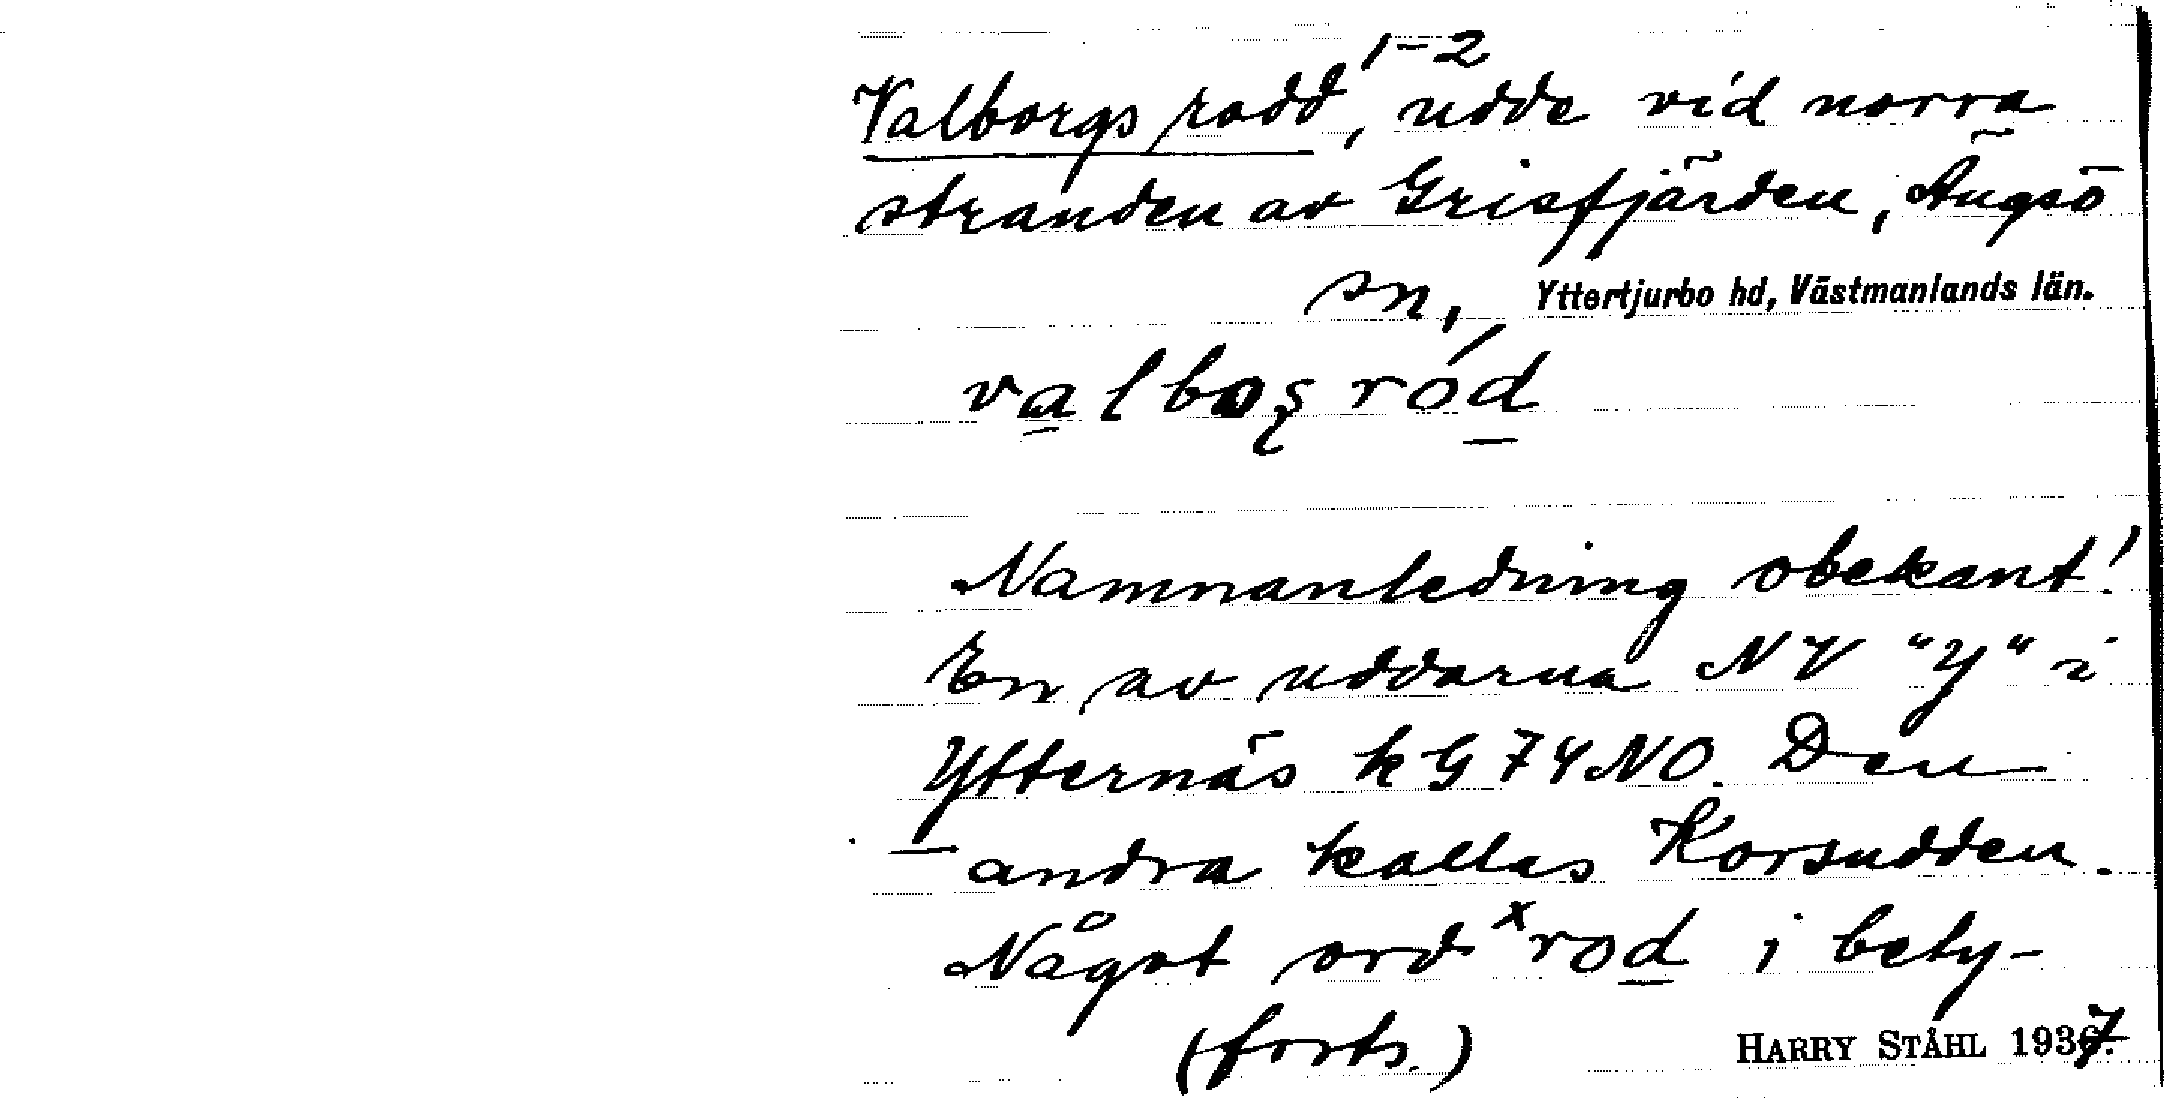 Valborgs rodd, 1-2 udde vid norra
stranden av Grisfjärden, Ängsö
sn, Yttertjurbo hd, Västmanlands län.
valboş ród
Namnanledning obekant!
En av uddarna NV "Y" i
Ytternäs kG 74 NO. Den
andra kallas Korsudden.
Något ord ˣrod i bety-
(forts.) HARRY STÅHL 1937